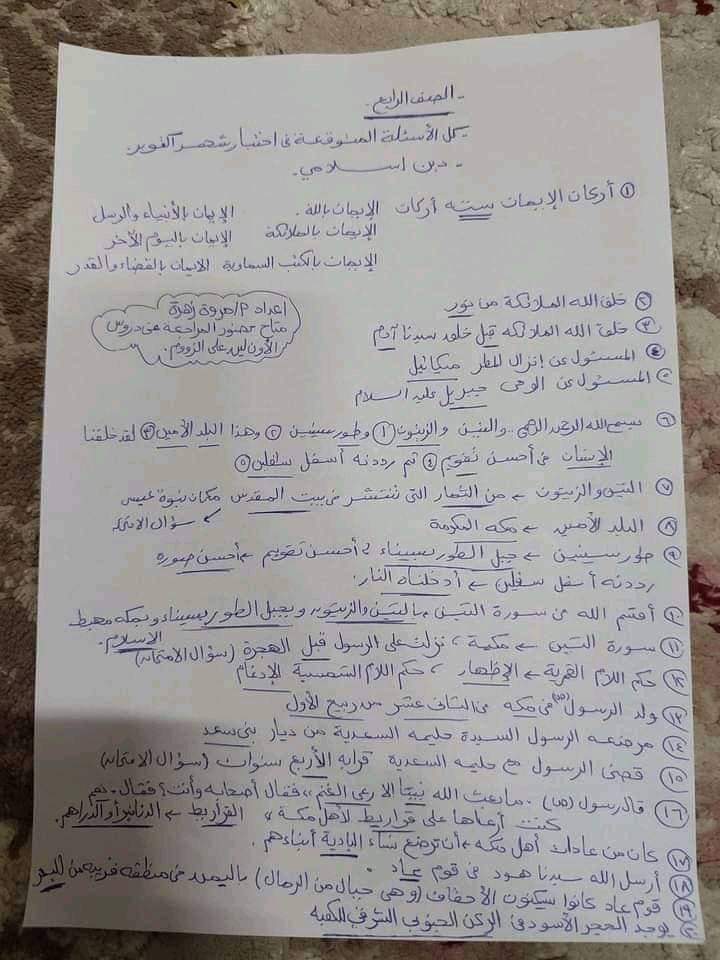 - الصف الرابع.
- كل الأسئلة المتوقعة فى اختبار شهر اكتوبر.
- دين اسلامي.
① أركان الإيمان ستة أركان
الإيمان بالله. الإيمان بالأنبياء والرسل
الإيمان بالملائكة الإيمان باليوم الآخر
الإيمان بالكتب السماوية الايمان بالقضاء والقدر
② خلق الله الملائكة من نور
اعداد P/مروة زهرة
متاح حضور المراجعة من دروس
الأون لين على الزووم.
③ خلق الله الملائكة قبل خلقه سيدنا آدم
④ المسئول عن إنزال المطر ميكائيل
⑤ المسئول عن الوحى جبريل عليه السلام
⑥ بسم الله الرحمن الرحيم .. والتين والزيتون ① وطور سينين ② وهذا البلد الأمين ③ لقد خلقنا
الإنسان فى أحسن تقويم ④ ثم رددنه أسفل سفلين ⑤
⑦ التين والزيتون ← من الثمار التى تنتشر فى بيت المقدس مكان نبوة عيسى
سؤال الامتحان
⑧ البلد الأمين ← مكه المكرمة
⑨ طور سينين ← جبل الطور بسيناء ، أحسن تقويم ← أحسن صوره
رددنه أسفل سفلين ← أدخلناه النار.
⑩ أقسم الله فى سورة التين بالتين والزيتون وبجبل الطور بسيناء وبمكه مهبط
الإسلام.
⑪ سورة التين ← مكية ، نزلت على الرسول قبل الهجرة (سؤال الامتحان)
⑫ حكم اللام القمرية ← الإظهار ، حكم اللام الشمسية الإدغام
⑬ ولد الرسول (ص) فى مكه فى الثانى عشر من ربيع الأول
⑭ مرضعه الرسول السيدة حليمه السعدية من ديار بنى سعد
⑮ قضى الرسول مع حليمه السعدية قرابه الأربع سنوات (سؤال الامتحان)
⑯ قال رسول (ص). ما بعث الله نبيا الا رعى الغنم ،، فقال أصحابه وأنت؟ فقال. نعم
كنت أرعاها على قراريط لأهل مكة ،، القراريط ← الدنانير أو الدراهم.
⑰ كان من عادات أهل مكه ← أن ترضع نساء البادية أبناءهم.
⑱ أرسل الله سيدنا هود فى قوم عاد
⑲ قوم عاد كانوا يسكنون الأحقاف (وهى جبال من الرمال) باليمن فى منطقه قريبه من البحر
⑳ يوجد الحجر الأسود فى الركن الجنوبى الشرقى للكعبه